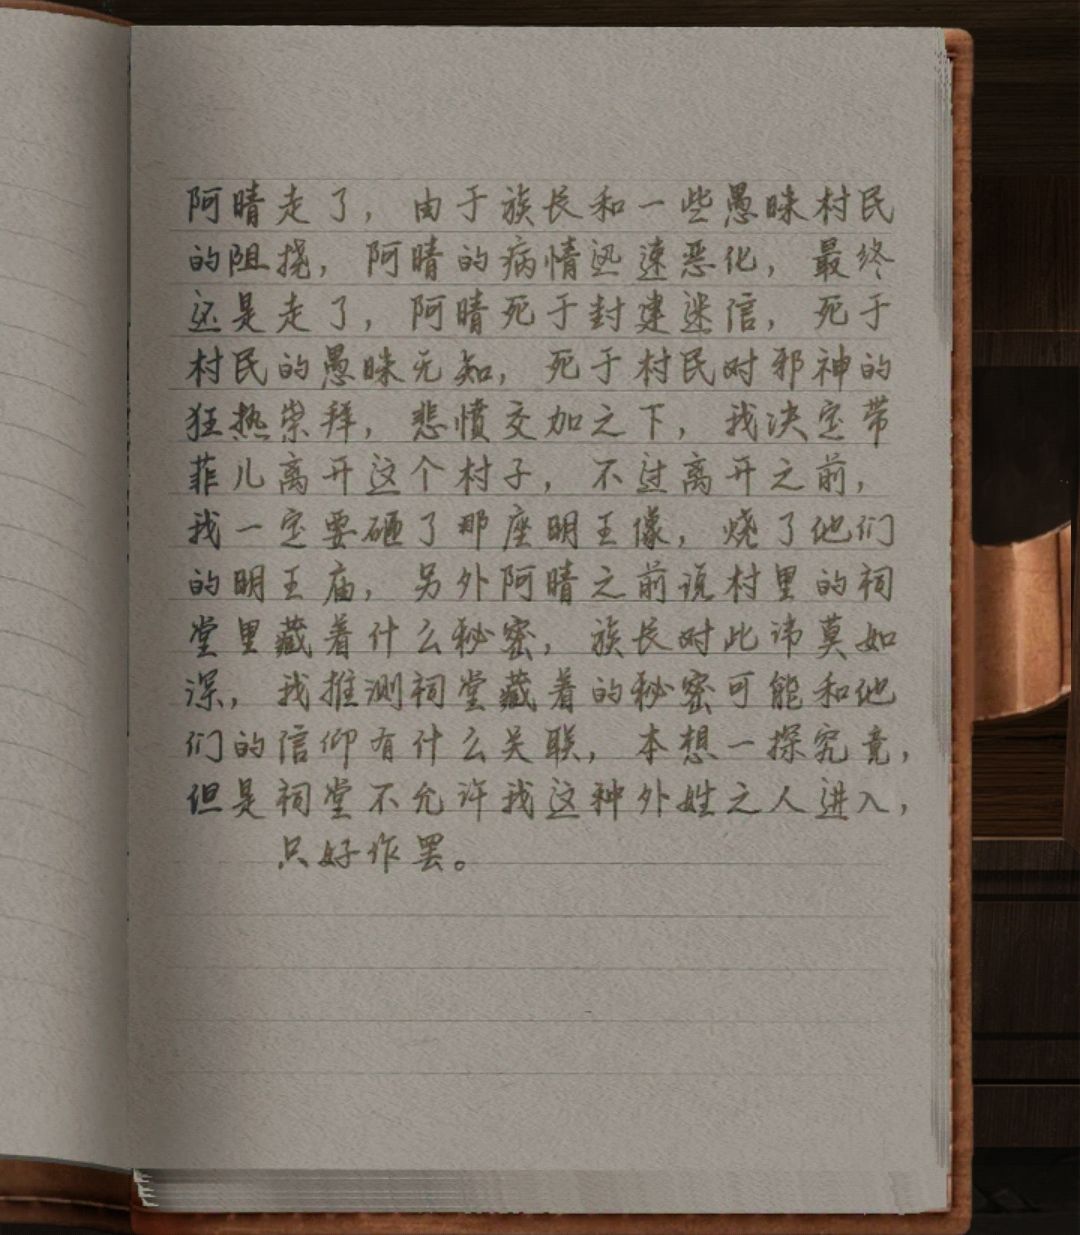 阿晴走了，由于族长和一些愚昧村民
的阻挠，阿晴的病情迅速恶化，最终
还是走了，阿晴死于封建迷信，死于
村民的愚昧无知，死于村民对邪神的
狂热崇拜，悲愤交加之下，我决定带
菲儿离开这个村子，不过离开之前，
我一定要砸了那座明王像，烧了他们
的明王庙，另外阿晴之前说村里的祠
堂里藏着什么秘密，族长对此讳莫如
深，我推测祠堂藏着的秘密可能和他
们的信仰有什么关联，本想一探究竟，
但是祠堂不允许我这种外姓之人进入，
只好作罢。